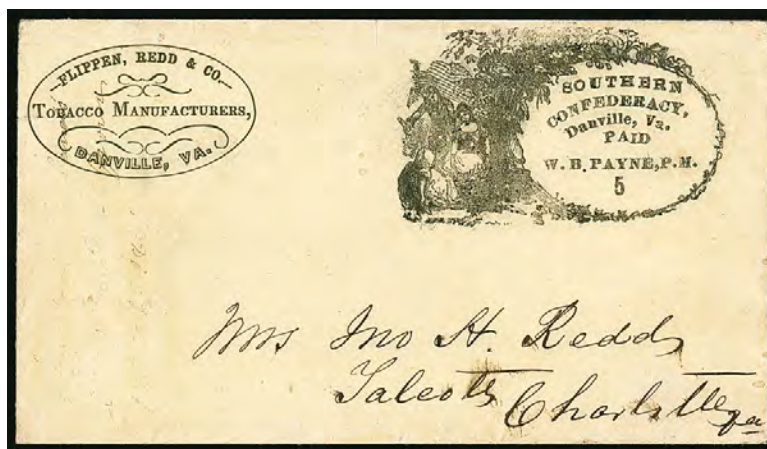 FLIPPEN, REDD & CO.
TOBACCO MANUFACTURERS,
DANVILLE, VA.
SOUTHERN
CONFEDERACY,
Danville, Va.
PAID
W. B. PAYNE, P. M.
5
Mrs Jno H. Redd
Talcotts
Charlotte